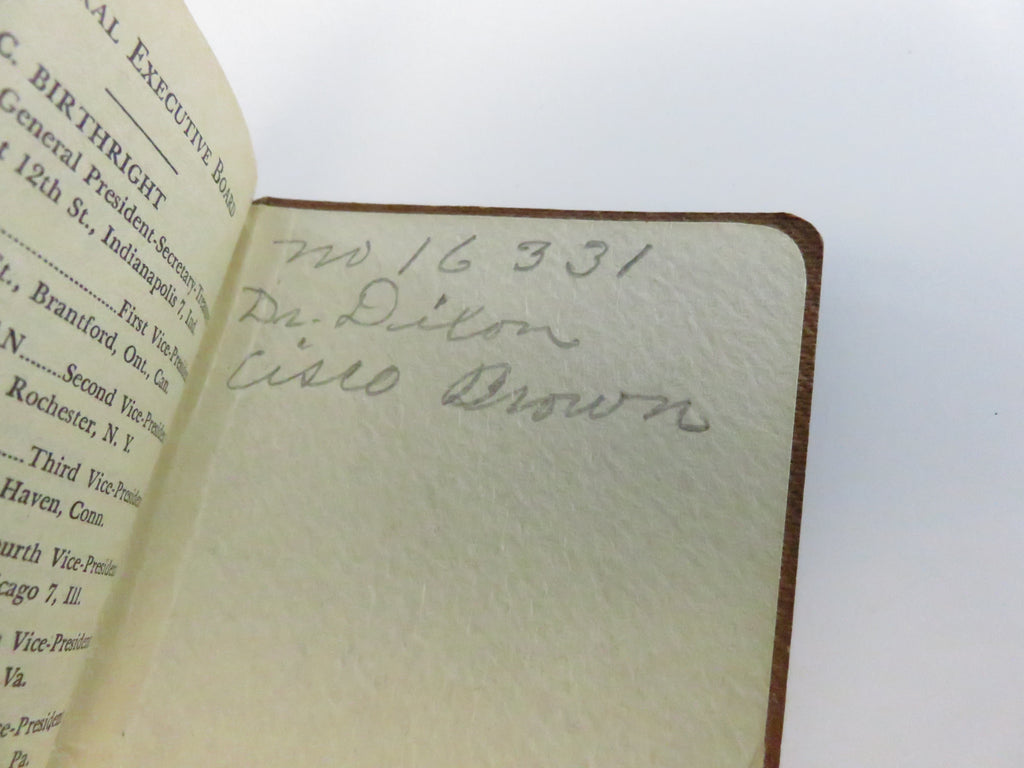 RAL EXECUTIVE BOARD
C. BIRTHRIGHT
General President-Secretary-Treasu
t 12th St., Indianapolis 7, Ind.
First Vice-Presid
St., Brantford, Ont., Can.
N......Second Vice-President
Rochester, N. Y.
Third Vice-President
Haven, Conn.
ourth Vice-President
cago 7, Ill.
Vice-President
Va.
ce-President
Pa.
no 16 331
Dr. Dixon
Cisco Brown